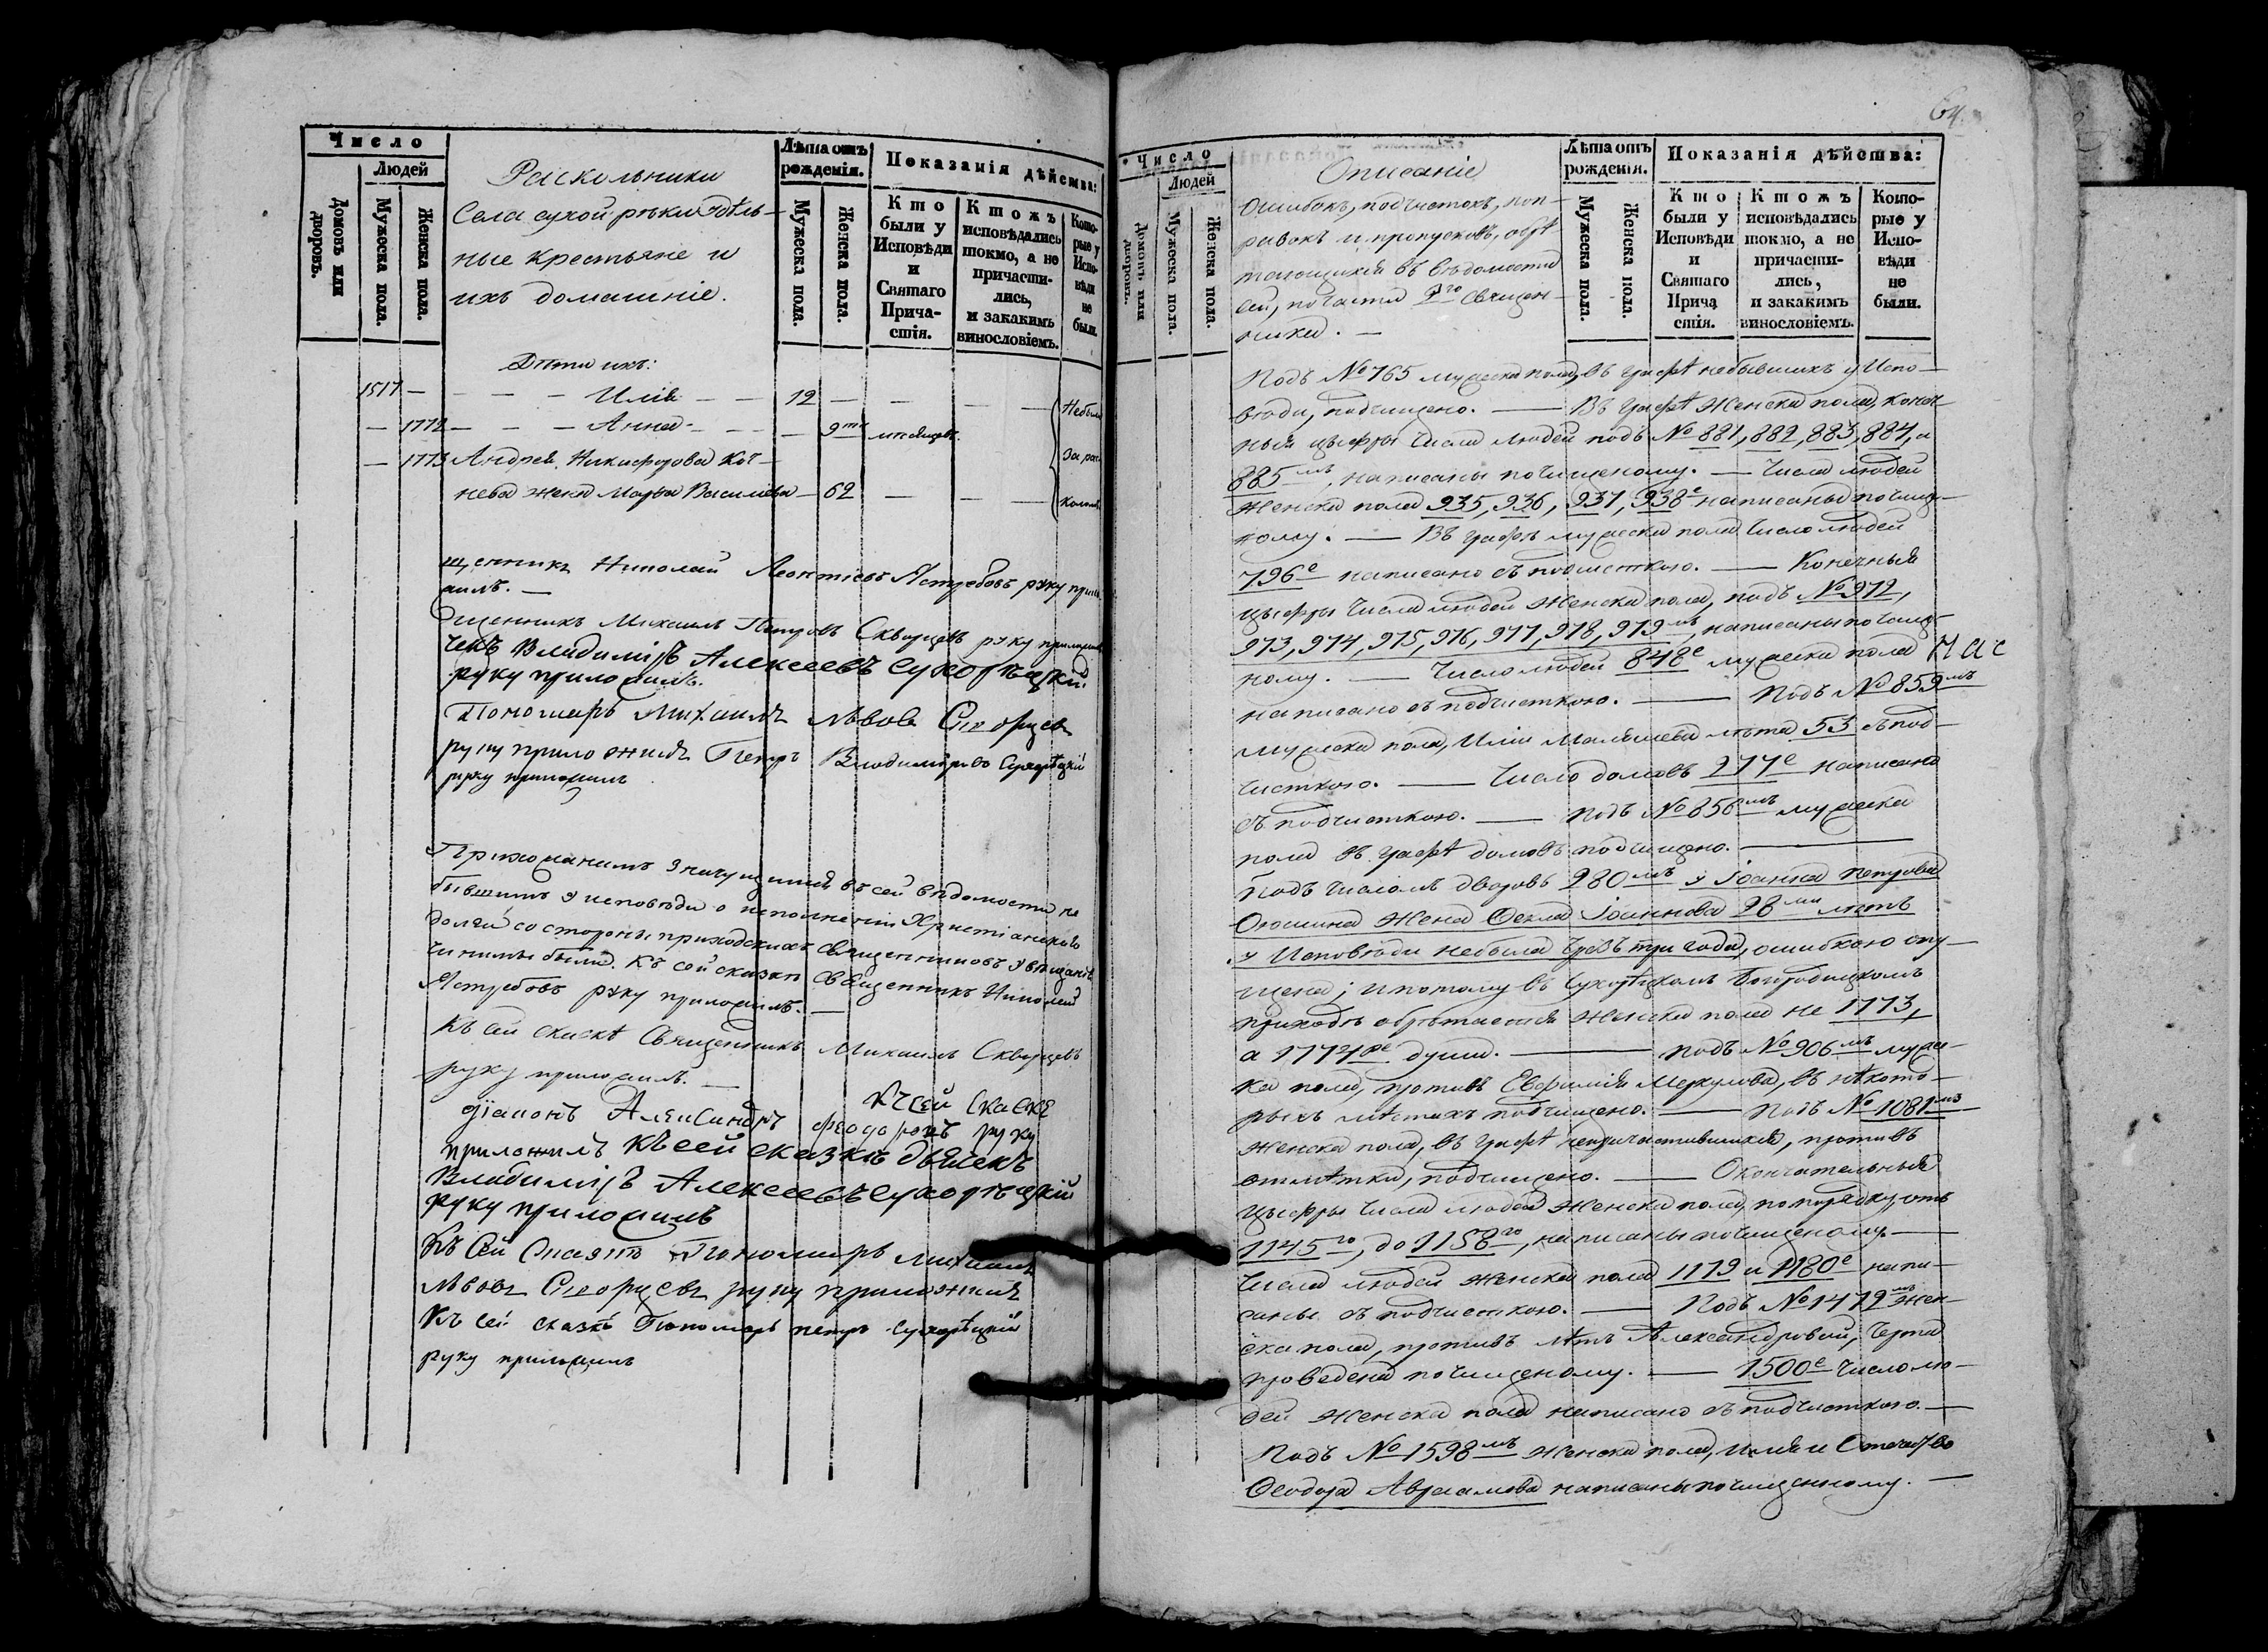 Число
Людей
Домовъ или дворовъ.
Мужеска пола.
Женска пола.
Раскольники
Села сухой реѣки удѣль-
ные крестьяне и
ихъ домашніе.
Лѣта отъ рожденія.
Мужеска пола.
Женска пола.
Показанія дѣйства:
Кто были у Исповѣди и Святаго Прича-стія.
Ктожъ исповѣдались токмо, а не причасти-лись, и закакимъ винословіемъ.
Кото-рые у Испо-вѣди не были.
Дѣти ихъ:
1517 — — — — Илія — — 12 — — — — Небыли
— 1772 — — — Анна — — — 9ти мѣсяцевъ.
— 1773 Андрея Никифорова Коч- За рас
нева жена Марѳа Василіева — 62 — — — колом
щенникъ Николай Леонтіевъ Ястребовъ руку прило
жилъ. —
Священникъ Михаилъ Петровъ Скворцевъ руку приложилъ
чекъ Владиміръ Алексеевъ Сухорѣцкій
руку приложилъ.
Пономарь Михаилъ Львовъ Скворцевъ
руку приложилъ Петръ Владиміровъ Сухорѣцкій
руку приложилъ
Прихожанамъ значущимся въ сей вѣдомости не
бывшимъ у исповѣди о исполненіи Христіанскаго
долга со стороны приходскихъ Священниковъ увѣщанія
чинимы были. Къ сей сказкѣ Священникъ Николай
Ястребовъ руку приложилъ. —
Къ сей сказкѣ Священникъ Михаилъ Скворцевъ
руку приложилъ. —
Къ сей скаске
діаконъ Александръ феодоровъ руку
приложилъ Къ сей сказкѣ дьячекъ
Владиміръ Алексеевъ Сухорѣцкій
руку приложилъ
Къ сей сказкѣ Пономарь Михаилъ
Львовъ Скворцевъ руку приложилъ
Къ сей сказкѣ Пономарь петръ Сухорѣцкій
руку приложилъ
64.
Число
Людей
Домовъ или дворовъ.
Мужеска пола.
Женска пола.
Описаніе
ошибокъ, подчистокъ, поп-
равокъ и пропусковъ, обрѣ
тающихся въ вѣдомости
сей, по части 2го Священ-
ника. —
Лѣта отъ рожденія.
Мужеска пола.
Женска пола.
Показанія дѣйства:
Кто были у Исповѣди и Святаго Прича стія.
Ктожъ исповѣдались токмо, а не причасти-лись, и закакимъ винословіемъ.
Кото-рые у Испо-вѣди не были.
Подъ № 765 мужеска пола, въ графѣ небывшихъ у Испо-
вѣди, подчищено. — Въ графѣ Женска пола, конеч-
ныя цыфры числа людей подъ № 881, 882, 883, 884, и
885мъ, написаны почищеному. — Числа людей
Женска пола 935, 936, 937, 938е написаны почище-
ному. — Въ графѣ мужеска пола число людей
796е написано съ подчисткою. — Конечныя
цыфры числа людей Женска пола, подъ № 972,
973, 974, 975, 976, 977, 978, 979мъ, написаны почище-
ному. — Число людей 848е мужеска пола нас
написано съ подчисткою. — Подъ № 859мъ
мужеска пола, Иліи Малышева лѣта 53 съ под-
чисткою. — Число домовъ 277е написано
съ подчисткою. — Подъ № 856мъ мужеска
пола въ графѣ домовъ подчищено. —
Подъ числомъ дворовъ 280мъ у Іоанна петрова
жена Ѳекла Іоаннова 28ми лѣтъ
у Исповѣди небыла чрезъ три года, ошибкою опу-
щена; и потому въ Сухорѣцкомъ Богородицкомъ
приходѣ обрѣтается Женска пола не 1773,
а 1774ре души. — Подъ № 906мъ мужес-
ка пола, противъ Евфимія Меркулова, въ нѣкото-
рыхъ мѣстахъ подчищено. — Подъ № 1081мъ
Женска пола, въ графѣ непричастившихся, противъ
отмѣтки, подчищено. — Окончательныя
цыфры числа людей Женска пола, по порядку, отъ
1145го, до 1158го, написаны почищеному. —
Числа людей Женска пола 1179 и 1180е напи-
саны съ подчисткою. — Подъ № 1472мъ Жен-
ска пола, противъ лѣтъ Александровой, черта
проведена почищеному. — 1500е число лю-
дей Женска пола написано съ подчисткою. —
Подъ № 1598мъ Женска пола, имя и Отечество
Ѳеодора Авраамова написаны почищенному. —